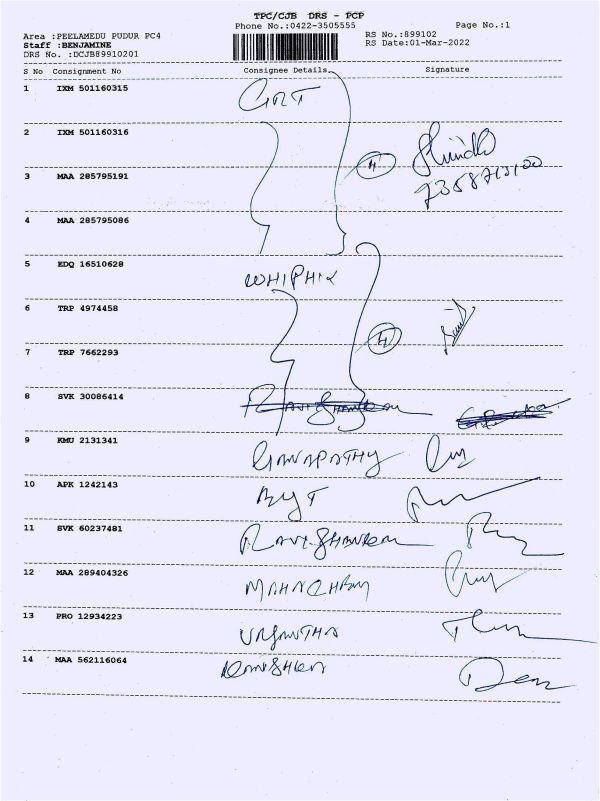 TPC/CJB DRS - PCP
Phone No.:0422-3505555
Page No.:1
Area :PEELAMEDU PUDUR PC4
RS No.:899102
Staff :BENJAMINE
RS Date:01-Mar-2022
DRS No. :DCJB89910201
S No Consignment No Consignee Details Signature
1 IXM 501160315 GRT
2 IXM 501160316
3 MAA 285795191 4
4 MAA 285795086
5 EDQ 16510628
6 TRP 4974458
7 TRP 7662293 4
8 SVK 30086414
9 KMU 2131341 GANAPATHY
10 APK 1242143
11 SVK 60237481 RAVI SHANKAR
12 MAA 289404326
13 PRO 12934223 VASANTHA
14 MAA 562116064